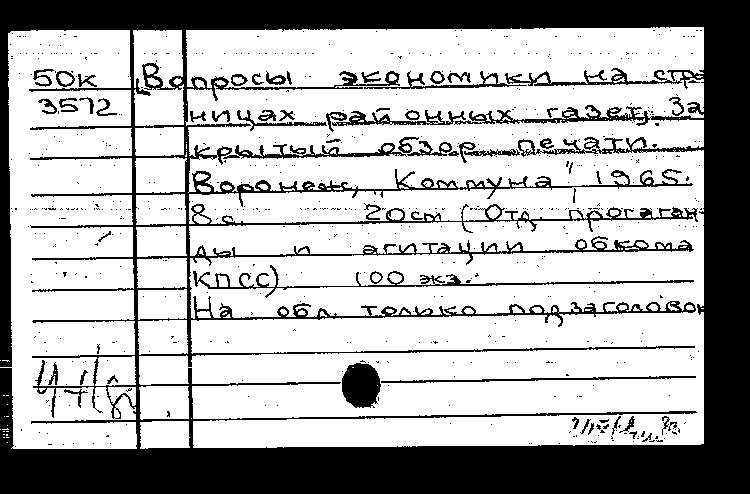 50к
3572
Вопросы экономики на стра
ницах районных газет. За
крытый обзор печати.
Воронеж, „Коммуна", 1965.
8 с. 20см (Отд. пропаган-
ды и агитации обкома
КПСС) 100 экз.
На обл. только подзаголовок